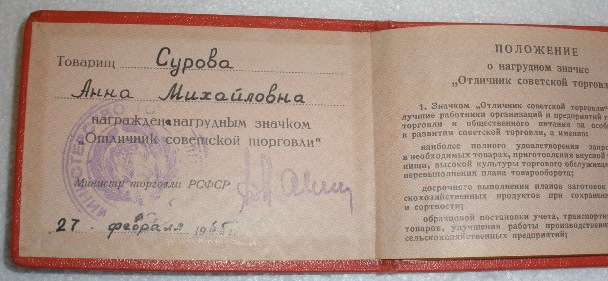 Товарищ Сурова
Анна Михайловна
награжден а нагрудным значком
„Отличник советской торговли“
Министр торговли РСФСР
„27" февраля 1965 г.
МИНИСТЕРСТВО
ПОЛОЖЕНИЕ
о нагрудном значке
„Отличник советской торговл
1. Значком „Отличник советской торговли
лучшие работники организаций и предприятий г
торговли и общественного питания за особ
в развитии советской торговли, а именно:
наиболее полного удовлетворения запро
в необходимых товарах, приготовления вкусной
пищи, высокой культуры торгового обслужива
перевыполнения плана товарооборота;
досрочного выполнения планов заготовок
скохозяйственных продуктов при сохранен
и сортности;
образцовой постановки учета, транспорти
товаров, улучшения работы производственн
сельскохозяйственных предприятий;